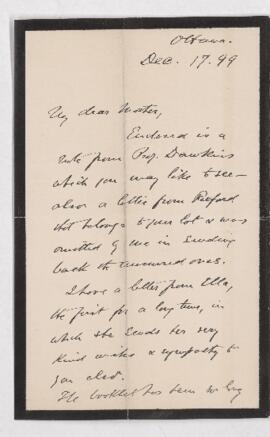 Ottawa.
Dec. 17. 99
My dear Mater,
Enclosed is a
note from Prof. Dawkins
which you may like to see—
also a letter from
that belongs to your lot & was
omitted by me in sending
back the ones.
I have a letter from Ella,
the first for a long time, in
which she sends her very
kind wishes & sympathy to
you also.
The booklet has been so long